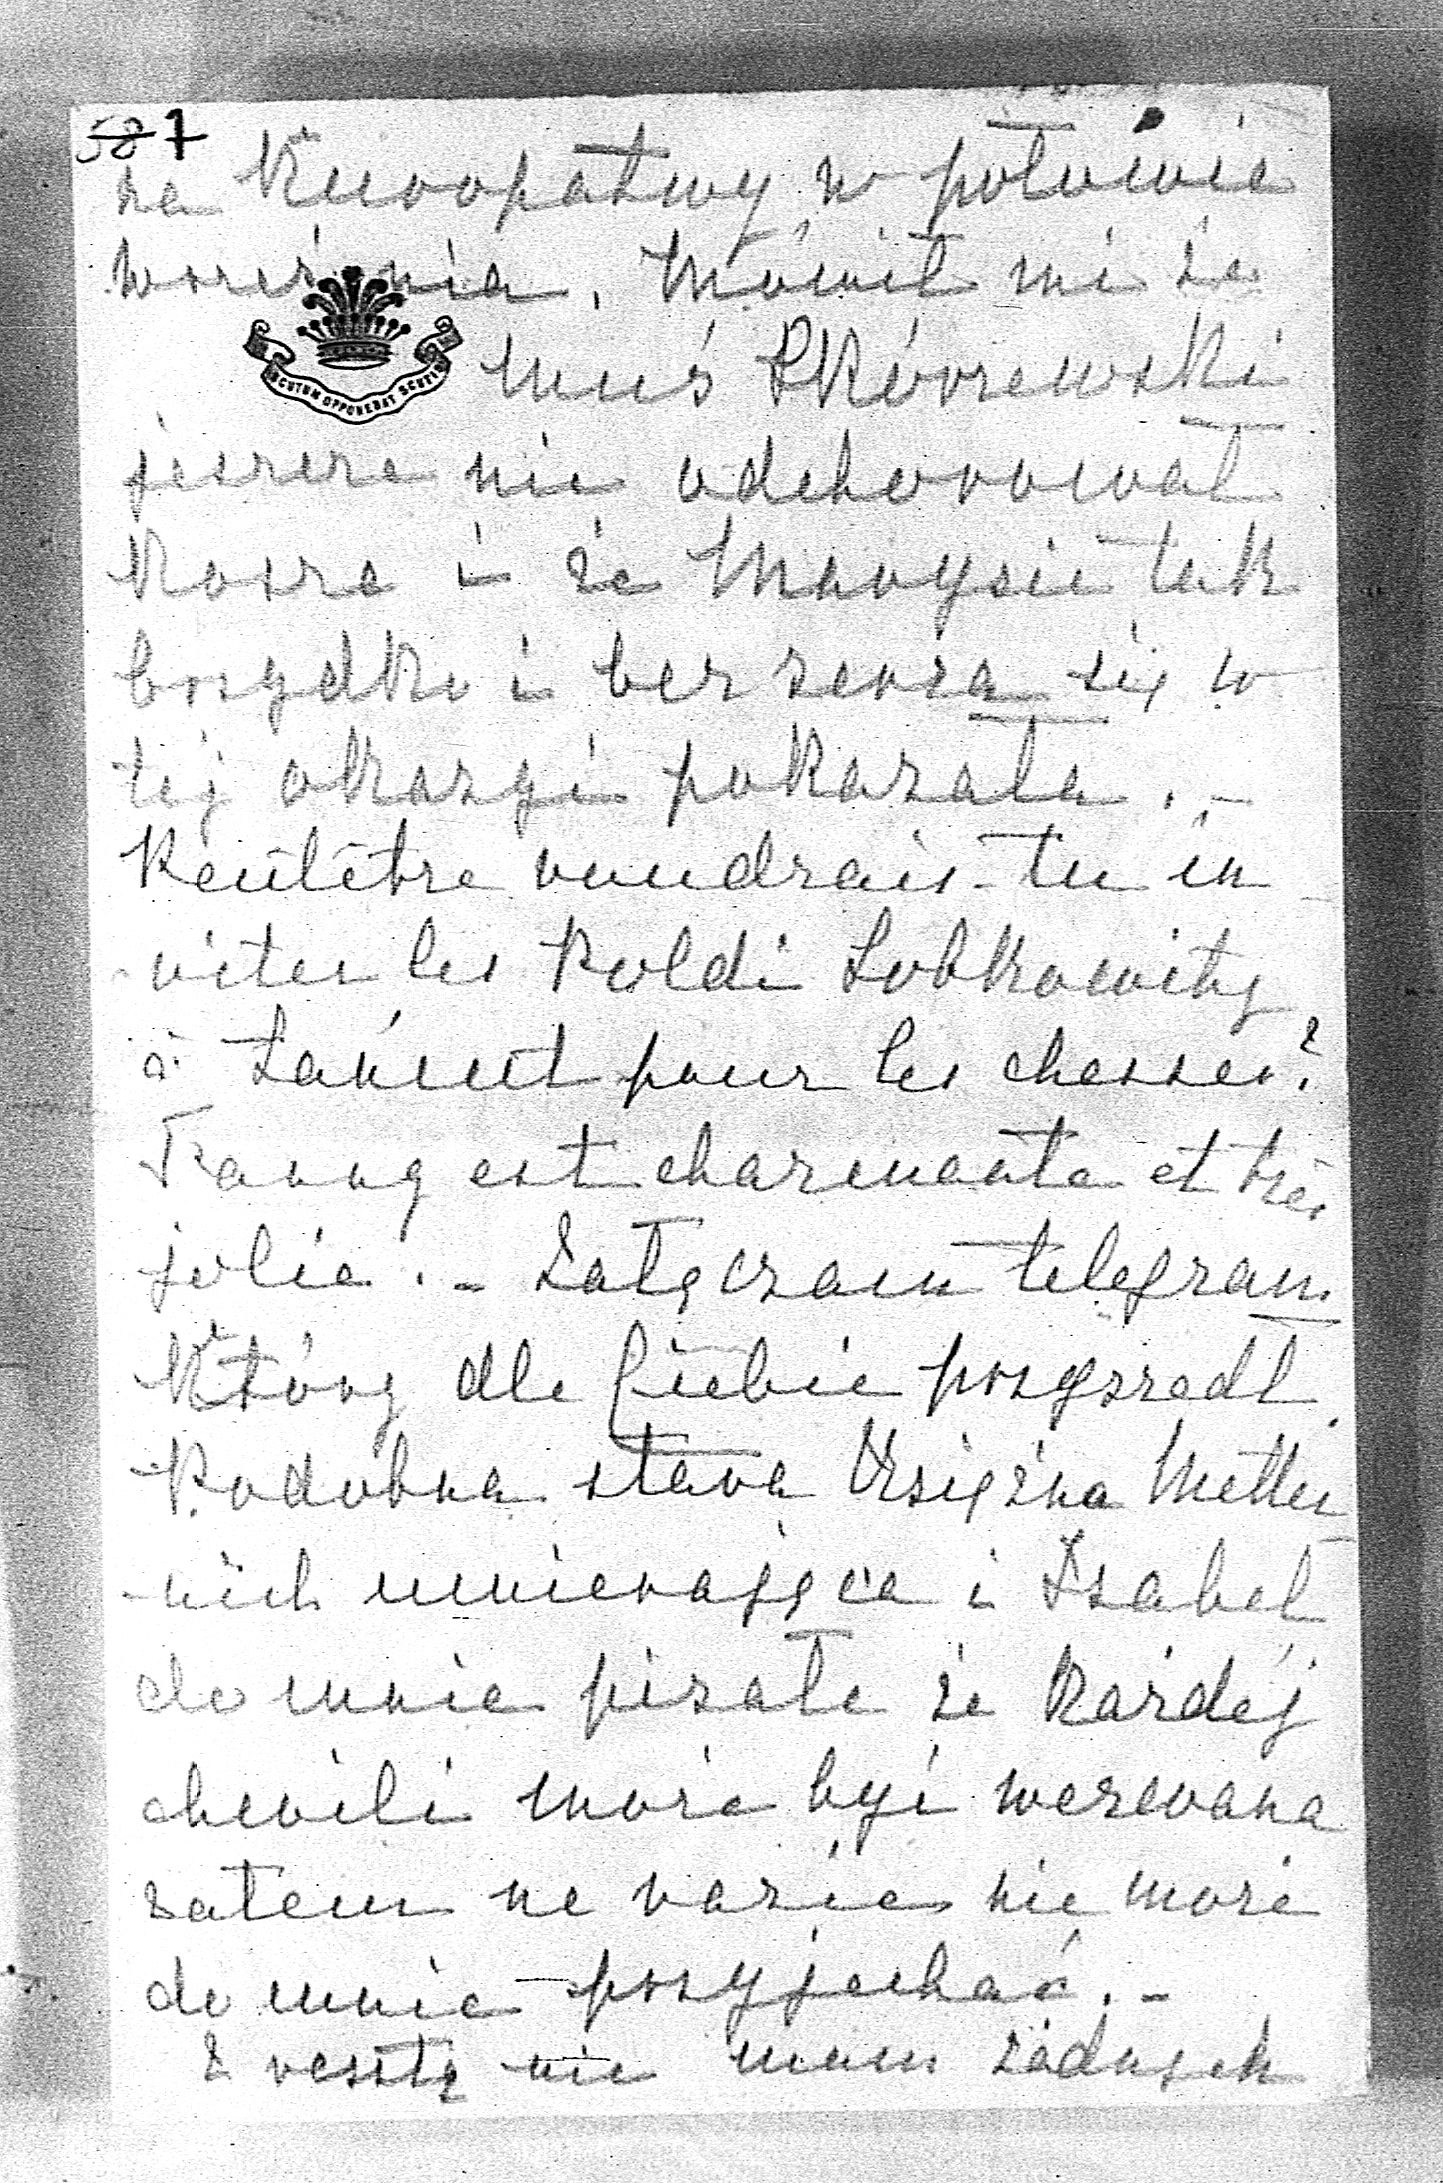 58 7
na Kuropatwy w połowie
września. Mówił mi że
SCUTUM OPPONEBAT SCUTIS
Muś Skórzewski
jeszcze nie odchorował
Kosza i że Marysie tak
brzydko i bez serca się w
tej okazyi pokazała. –
Peutêtre voudrais-tu in
viter les Poldi Lobkowitz
à Łańcut pour les chasses?
Fanny est charmante et très
jolie. – Załączam telegram
Który dla Ciebie przyszedł.
Podobna stara Księżna Metter
nich umierająca i Isabel
do mnie pisała że Każdéj
chwili może być wezwana
zatem na razie nie może
do mnie przyjechać. –
Z resztą nie mam żadnych